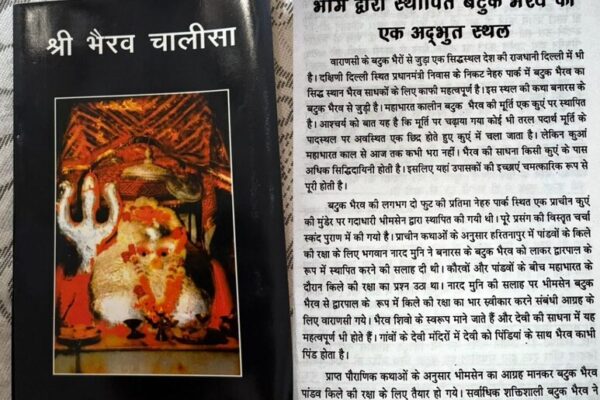 श्री भैरव चालीसा
भीम द्वारा स्थापित बटुक भैरव का
एक अद्‌भुत स्थल
वाराणसी के बटुक भैरों से जुड़ा एक सिद्धस्थल देश की राजधानी दिल्ली में भी
है। दक्षिणी दिल्ली स्थित प्रधानमंत्री निवास के निकट नेहरु पार्क में बटुक भैरव का
सिद्ध स्थान भैरव साधकों के लिए काफी महत्वपूर्ण है। इस स्थल की कथा बनारस के
बटुक भैरव से जुड़ी है। महाभारत कालीन बटुक भैरव की मूर्ति एक कुएं पर स्थापित
है। आश्चर्य की बात यह है कि मूर्ति पर चढ़ाया गया कोई भी तरल पदार्थ मूर्ति के
पादस्थल पर अवस्थित एक छिद्र होते हुए कुएं में चला जाता है। लेकिन कुआं
महाभारत काल से आज तक कभी भरा नहीं। भैरव की साधना किसी कुएं के पास
अधिक सिद्धिदायिनी होती है। इसलिए यहां उपासकों की इच्छाएं चमत्कारिक रूप से
पूरी होती है।
बटुक भैरव की लगभग दो फुट की प्रतिमा नेहरु पार्क स्थित एक प्राचीन कुएं
की मुंडेर पर गदाधारी भीमसेन द्वारा स्थापित की गयी थी। पूरे प्रसंग की विस्तृत चर्चा
स्कंद पुराण में की गयी है। प्राचीन कथाओं के अनुसार हस्तिनापुर में पांडवों के किले
की रक्षा के लिए भगवान नारद मुनि ने बनारस के बटुक भैरव को लाकर द्वारपाल के
रूप में स्थापित करने की सलाह दी थी। कौरवों और पांडवों के बीच महाभारत के
दौरान किले की रक्षा का प्रश्न उठा था। नारद मुनि की सलाह पर भीमसेन बटुक
भैरव से द्वारपाल के रूप में किले की रक्षा का भार स्वीकार करने संबंधी आग्रह के
लिए वाराणसी गये। भैरव शिवो के स्वरूप माने जाते हैं और देवी की साधना में यह
महत्वपूर्ण भी होते हैं। गांवों के देवी मंदिरों में देवी को पिंडियां के साथ भैरव काभी
पिंड होता है।
प्राप्त पौराणिक कथाओं के अनुसार भीमसेन का आग्रह मानकर बटुक भैरव
पांडव किले की रक्षा के लिए तैयार हो गये। सर्वाधिक शक्तिशाली बटुक भैरव ने